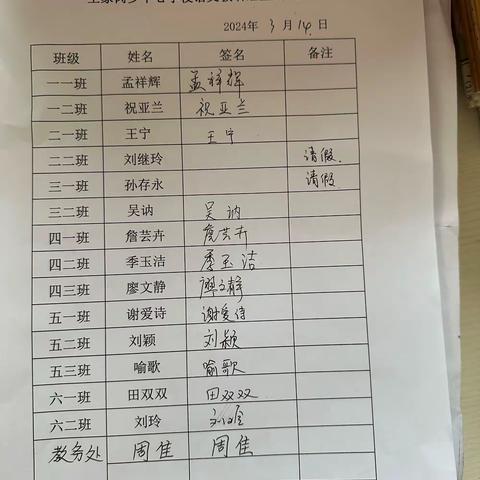 2024年 3 月 14 日
班级 姓名 签名 备注
一一班 孟祥辉 孟祥辉
一二班 祝亚兰 祝亚兰
二一班 王宁 王宁
二二班 刘继玲 请假
三一班 孙存永 请假
三二班 吴讷 吴讷
四一班 詹芸卉 詹芸卉
四二班 季玉洁 季玉洁
四三班 廖文静 廖文静
五一班 谢爱诗 谢爱诗
五二班 刘颖 刘颖
五三班 喻歌 喻歌
六一班 田双双 田双双
六二班 刘玲
教务处 周佳 周佳